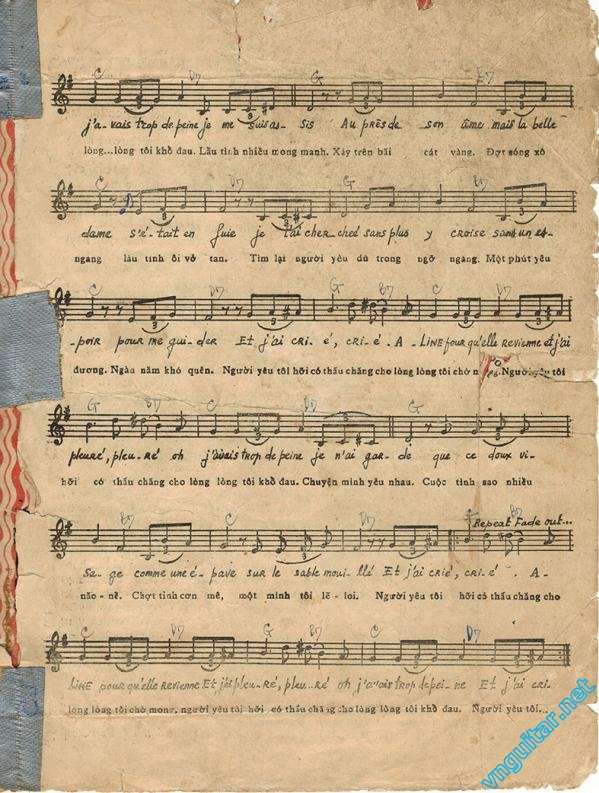 C D7 G E7
j'a-vais trop de peine je me suis as-sis Au près de son âme mais la belle
lòng...lòng tôi khổ đau. Lâu tình nhiều mong manh. Xây trên bãi cát vàng. Đợt sóng xô
C D7 G B7
dame s'é-tait en fuie je t'ai cher-chée sans plus y croise sans un es-
ngang lâu tình ôi vỡ tan. Tìm lại người yêu dù trong ngỡ ngàng. Một phút yêu
C D7 G B7 C D7
-poir pour me gui-der Et j'ai cri-é, cri-é. A-LINE pour qu'elle revienne et j'ai
đương. Ngàn năm khó quên. Người yêu tôi hỡi có thấu chăng cho lòng lòng tôi chờ Người yêu tôi
G B7 C D7 G
pleuré, pleu-ré oh j'avais trop de peine je n'ai gar-de que ce doux vi-
hỡi có thấu chăng cho lòng lòng tôi khổ đau. Chuyện mình yêu nhau. Cuộc tình sao nhiều
Repeat Fade out...
B7 C D7 G B7
Sa-ge comme une é-pave sur le sable moui-llé Et j'ai crié, cri-é. A-
não-nề. Chợt tỉnh cơn mê, một mình tôi lẻ-loi. Người yêu tôi hỡi có thấu chăng cho
C D7 G B7 C D7
LINE pour qu'elle revienne Et j'ai pleu-ré, pleu...ré oh j'avais trop de pei-ne Et j'ai cri-
lòng lòng tôi chờ mong, người yêu tôi hỡi có thấu chăng cho lòng lòng tôi khổ đau. Người yêu tôi...
vnguitar.net